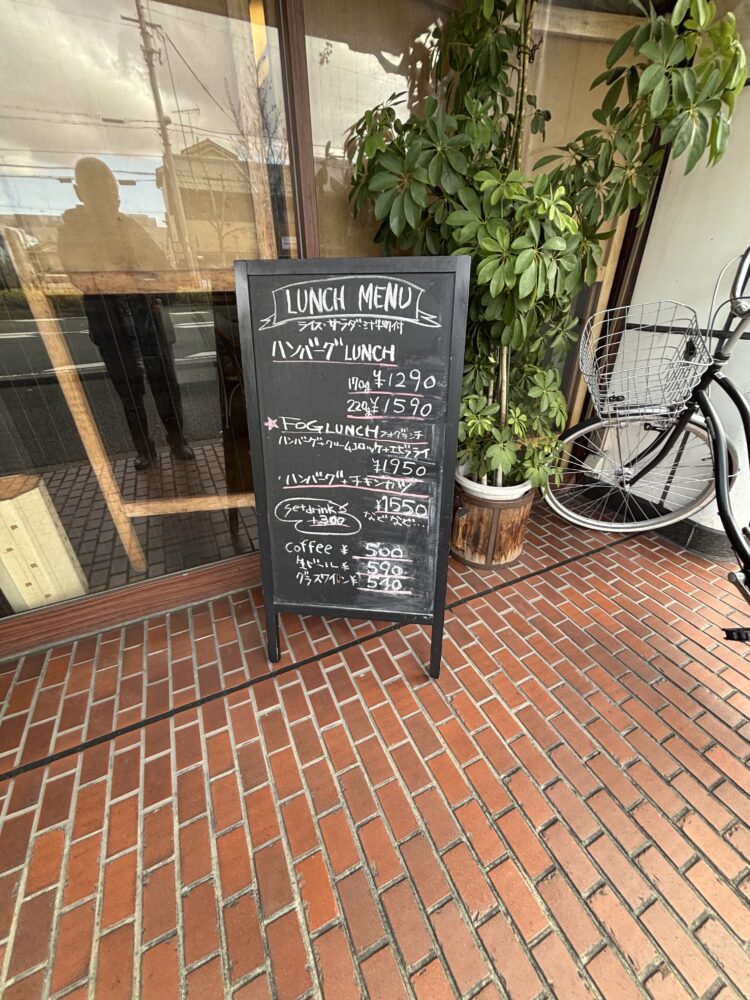 LUNCH MENU
ライス・サラダ・ミソ汁付
ハンバーグ LUNCH
170g ¥1290
220g ¥1590
FOG LUNCH フォグランチ
ハンバーグ+クリームコロッケ+エビフライ
¥1950
ハンバーグ+チキンカツ
¥1550
setdrink
+300
などなど…
coffee ¥ 500
生ビール ¥ 590
グラスワイン ¥ 540